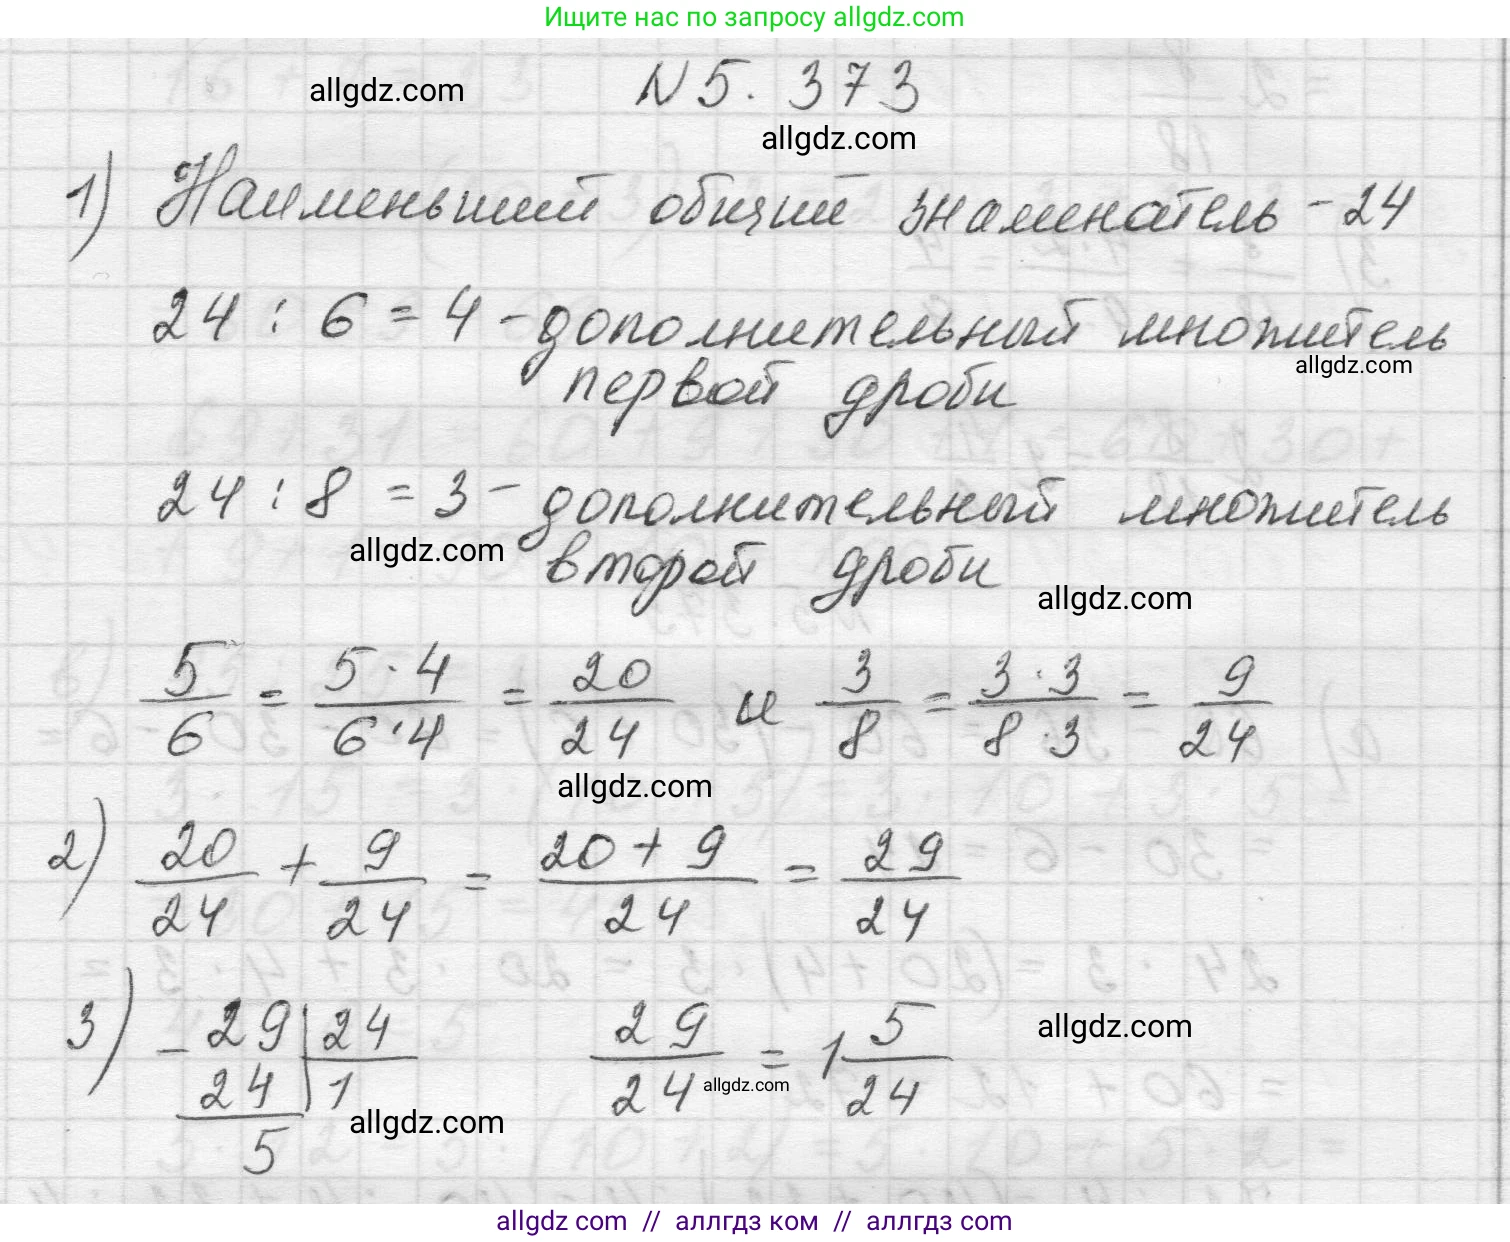 Ищите нас по запросу allgdz.com
allgdz.com
N 5. 373
allgdz.com
1) Наименьший общий знаменатель - 24
24 : 6 = 4 - дополнительный множитель
allgdz.com
первой дроби
24 : 8 = 3 - дополнительный множитель
allgdz.com
второй дроби
allgdz.com
5/6 = 5·4/6·4 = 20/24 и 3/8 = 3·3/8·3 = 9/24
allgdz.com
2) 20/24 + 9/24 = 20+9/24 = 29/24
3) - 29 | 24
24 | 1
5
29/24 = 1 5/24
allgdz.com
allgdz.com
allgdz.com
allgdz com // аллгдз ком // аллгдз com